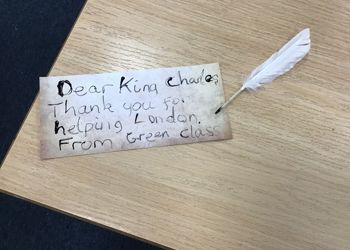 Dear King Charles
Thank you for
helping London.
From Green class